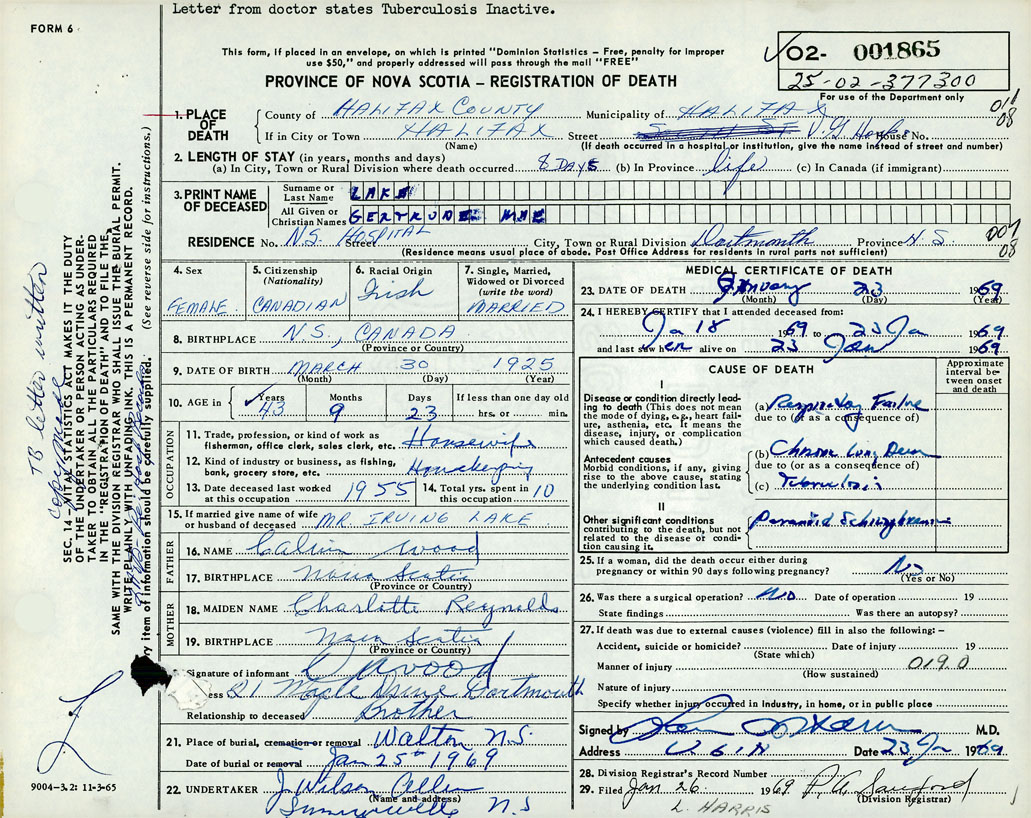 Letter from doctor states Tuberculosis Inactive.
FORM 6
This form, if placed in an envelope, on which is printed "Dominion Statistics – Free, penalty for improper
use $50," and properly addressed will pass through the mail "FREE"
PROVINCE OF NOVA SCOTIA – REGISTRATION OF DEATH
02- 001865
25-02-377300
For use of the Department only
011
08
1. PLACE OF DEATH
County of HALIFAX COUNTY Municipality of HALIFAX
If in City or Town HALIFAX Street V.G. House No.
(Name) (If death occurred in a hospital or institution, give the name instead of street and number)
2. LENGTH OF STAY (in years, months and days)
(a) In City, Town or Rural Division where death occurred 8 DAYS (b) In Province life (c) In Canada (if immigrant)
3. PRINT NAME OF DECEASED
Surname or Last Name LAKE
All Given or Christian Names GERTRUDE MAE
RESIDENCE No. N.S. HOSPITAL Street City, Town or Rural Division Dartmouth Province N.S.
007
08
(Residence means usual place of abode. Post Office Address for residents in rural parts not sufficient)
4. Sex FEMALE
5. Citizenship (Nationality) CANADIAN
6. Racial Origin Irish
7. Single, Married, Widowed or Divorced (write the word) MARRIED
8. BIRTHPLACE N.S., CANADA
(Province or Country)
9. DATE OF BIRTH MARCH 30 1925
(Month) (Day) (Year)
10. AGE in Years 43 Months 9 Days 23 If less than one day old hrs. or min.
OCCUPATION
11. Trade, profession or kind of work as fisherman, office clerk, sales clerk, etc. Housewife
12. Kind of industry or business, as fishing, bank, grocery store, etc. Housekeeping
13. Date deceased last worked at this occupation 1955
14. Total yrs. spent in this occupation 10
15. If married give name of wife or husband of deceased MR. IRVING LAKE
FATHER
16. NAME Calvin Wood
17. BIRTHPLACE Nova Scotia
(Province or Country)
MOTHER
18. MAIDEN NAME Charlotte Reynolds
19. BIRTHPLACE Nova Scotia
(Province or Country)
Signature of informant Wood
21 Maple Drive Dartmouth
Relationship to deceased Brother
21. Place of burial, cremation or removal Walton N.S.
Date of burial or removal Jan 25th 1969
22. UNDERTAKER J. Wilson Allen
(Name and address)
N.S
MEDICAL CERTIFICATE OF DEATH
23. DATE OF DEATH January 23 1969
(Month) (Day) (Year)
24. I HEREBY CERTIFY that I attended deceased from:
Ja 18 1969 to 23 Ja 1969
and last saw her alive on 23 Jan 1969
CAUSE OF DEATH
Approximate interval between onset and death
I
Disease or condition directly leading to death (This does not mean the mode of dying, e.g., heart failure, asthenia, etc. It means the disease, injury, or complication which caused death.)
(a) Respiratory Failure
due to (or as a consequence of)
Antecedent causes
Morbid conditions, if any, giving rise to the above cause, stating the underlying condition last.
(b) Chronic Lung Disease
due to (or as a consequence of)
(c) Tuberculosis
II
Other significant conditions contributing to the death, but not related to the disease or condition causing it.
Paranoid Schizophrenia
25. If a woman, did the death occur either during pregnancy or within 90 days following pregnancy? No
(Yes or No)
26. Was there a surgical operation? NO Date of operation 19
State findings Was there an autopsy?
27. If death was due to external causes (violence) fill in also the following: –
Accident, suicide or homicide? Date of injury 19
(State which)
Manner of injury 019.0
(How sustained)
Nature of injury
Specify whether injury occurred in industry, in home, or in public place
Signed by M.D.
Address Date 23 Ja 1969
28. Division Registrar's Record Number
29. Filed Jan 26 1969
(Division Registrar)
L. HARRIS
SEC. 14 VITAL STATISTICS ACT MAKES IT THE DUTY
OF THE UNDERTAKER OR PERSON ACTING AS UNDER-
TAKER TO OBTAIN ALL THE PARTICULARS REQUIRED
IN THE "REGISTRATION OF DEATH" AND TO FILE THE
SAME WITH THE DIVISION REGISTRAR WHO SHALL ISSUE THE BURIAL PERMIT.
WRITE PLAINLY WITH UNFADING INK. THIS IS A PERMANENT RECORD.
ry item of information should be carefully supplied. (See reverse side for instructions.)
TB letter written
9004-3.2: 11-3-65